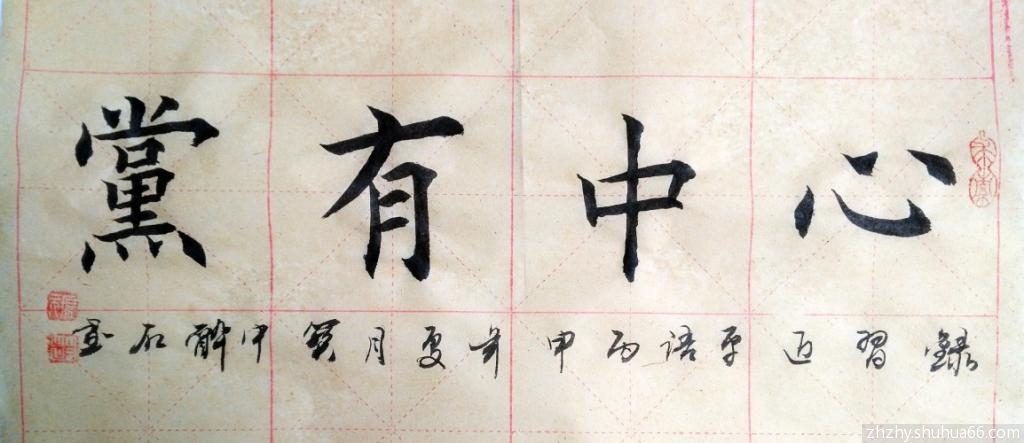 心中有黨
錄習近平語丙申年夏月賀中醉石書
zhzhy.shuhua66.com